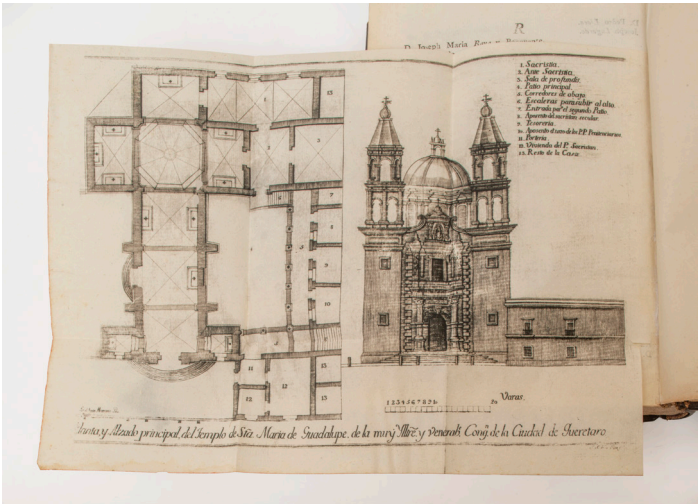 R
D. Joseph Maria,
1. Sacristia.
2. Ante Sacristia.
3. Sala de profundis.
4. Patio principal.
5. Corredores de abajo.
6. Escaleras para subir al alto.
7. Entrada par el segundo Patio.
8. Aposento del sacristan secular.
9. Tesoreria.
10. Aposento d'uno de los PP. Penitenciarios
11. Porteria.
12. Vivienda del P. Sacristan.
13. Resto de la Casa.
1
13
2
3
7
8
9
10
11
12
13
12
13
1 2 3 4 5 6 7 8 9 10
20
Varas.
Planta, y Alzado principal, del Templo de Sta. Maria de Guadalupe, de la muy Illre. y Venerab. Cong. de la Ciudad de Queretaro